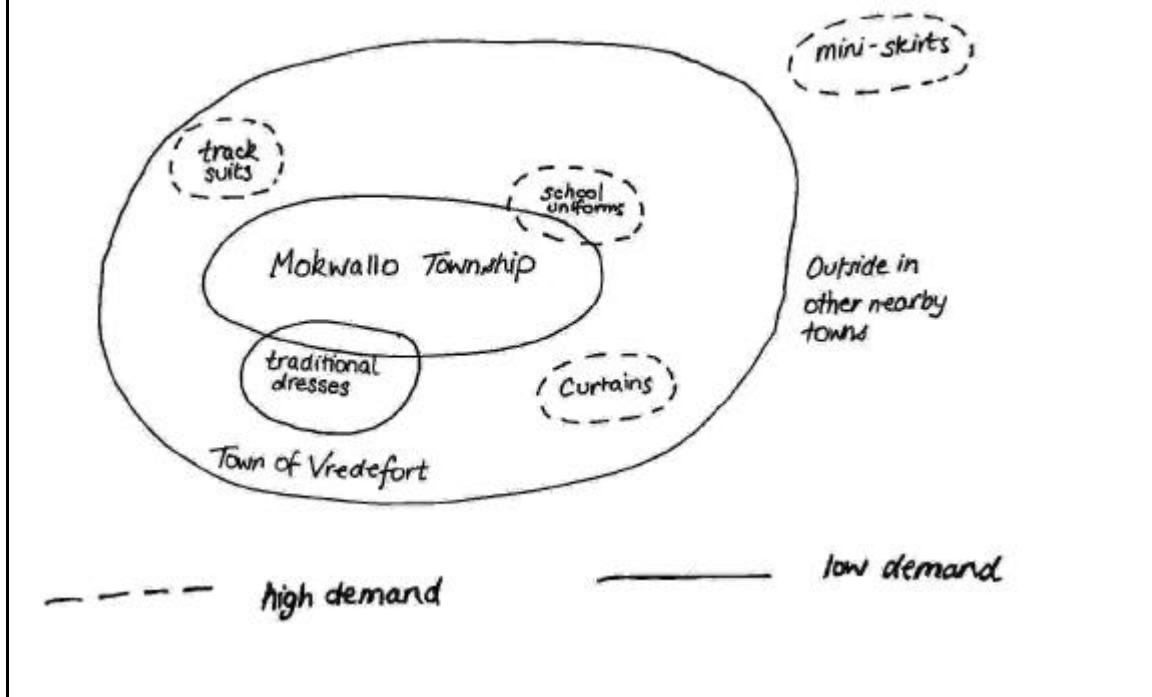 mini-skirts
track
suits
school
uniforms
Mokwallo Township
Outside in
other nearby
towns
traditional
dresses
Curtains
Town of Vredefort
high demand
low demand